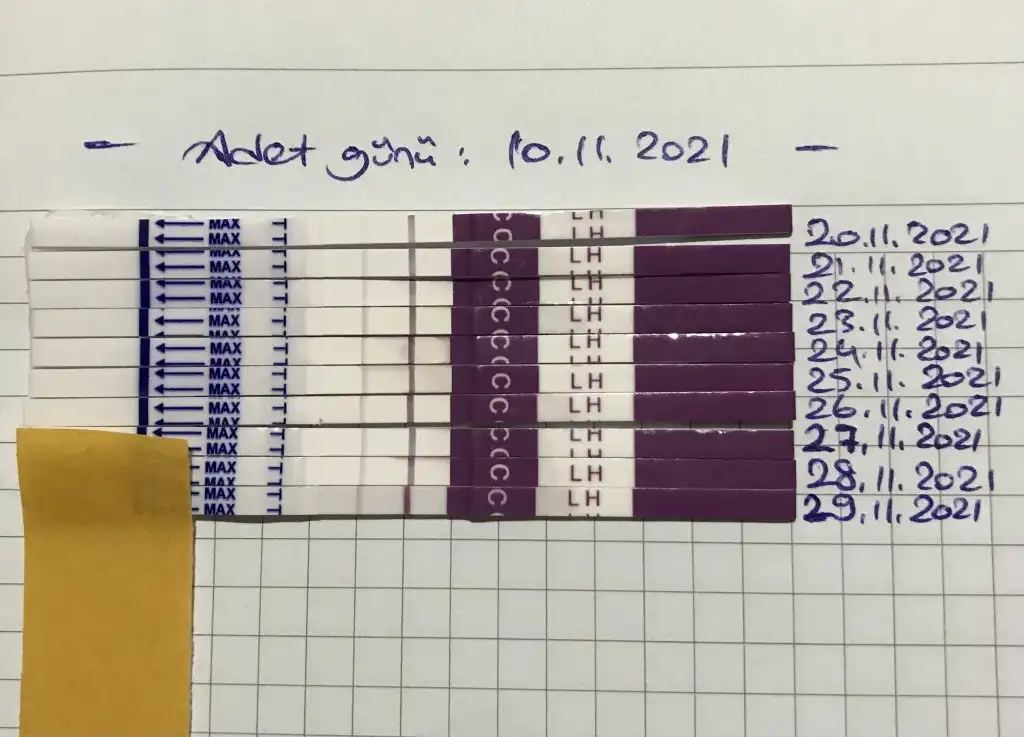 - Adet günü : 10.11.2021 -
MAX T C LH
MAX T C LH 20.11.2021
MAX T C LH 21.11.2021
MAX T C LH 22.11.2021
MAX T C LH 23.11.2021
MAX T C LH 24.11.2021
MAX T C LH 25.11.2021
MAX T C LH 26.11.2021
MAX T C LH 27.11.2021
MAX T C LH 28.11.2021
MAX T C LH 29.11.2021